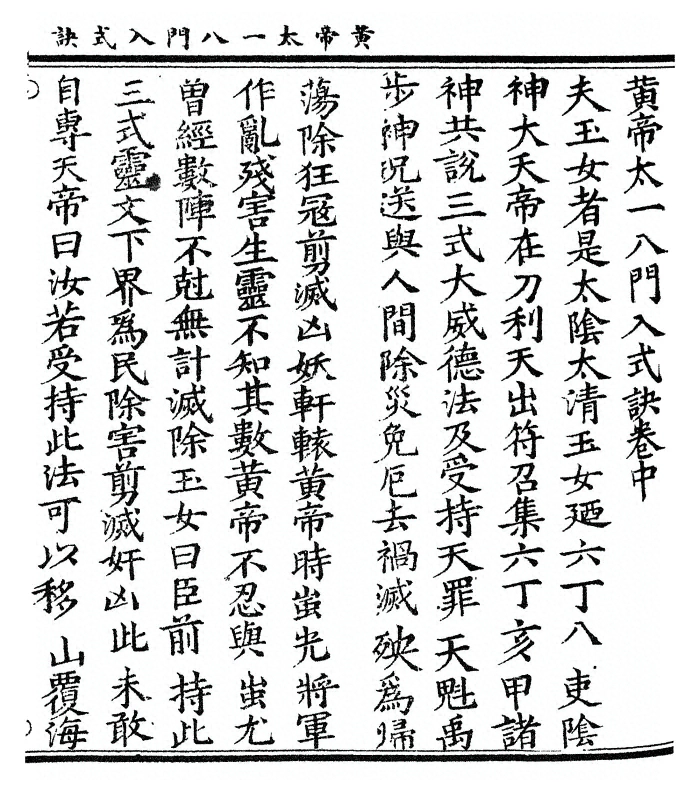 黃帝太一八門入式訣
黃帝太一八門入式訣卷中
夫玉女者是太陰太清玉女廼六丁八吏陰
神大天帝在刀利天出符召集六丁亥甲諸
神共說三式大威德法及受持天罪天魁禹
步神呪送與人間除災免厄去禍滅殃爲歸
蕩除狂冦剪滅凶妖軒轅黃帝時蚩尤將軍
作亂殘害生靈不知其數黃帝不忍與蚩尤
曽經數陣不尅無計滅除玉女曰臣前持此
三式靈文下界爲民除害剪滅奸凶此未敢
自專天帝曰汝若受持此法可以移山覆海